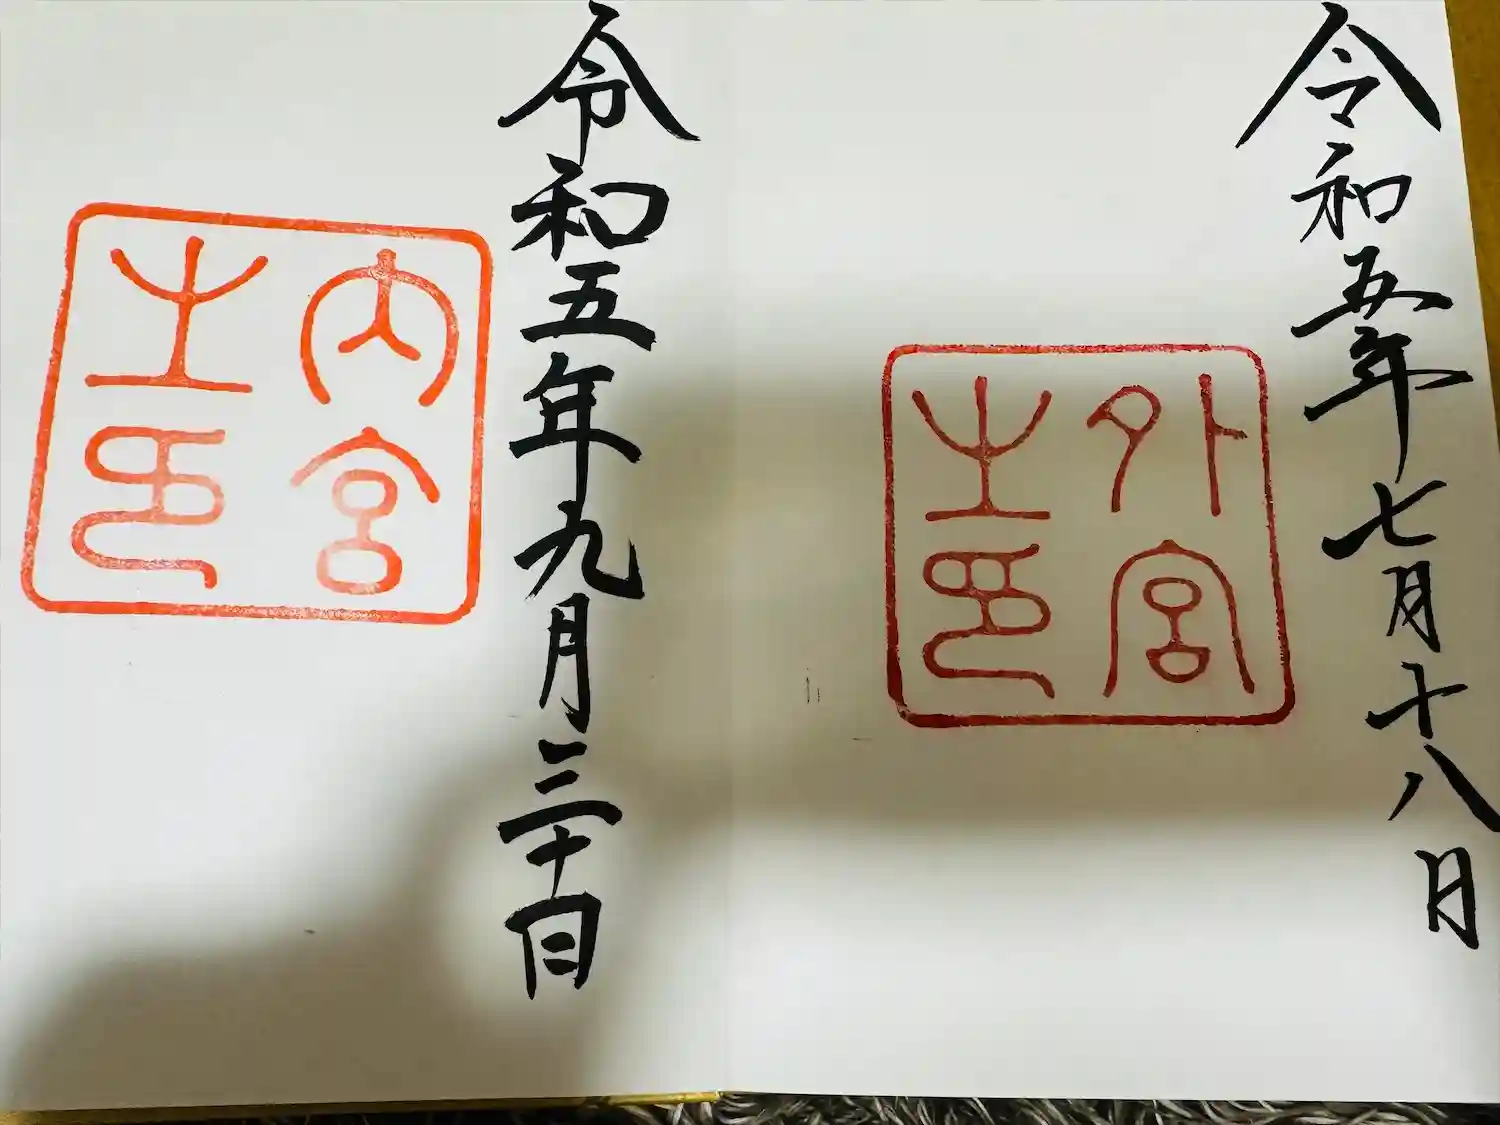 令和五年七月十八日
外宮之印
令和五年九月三十日
内宮之印